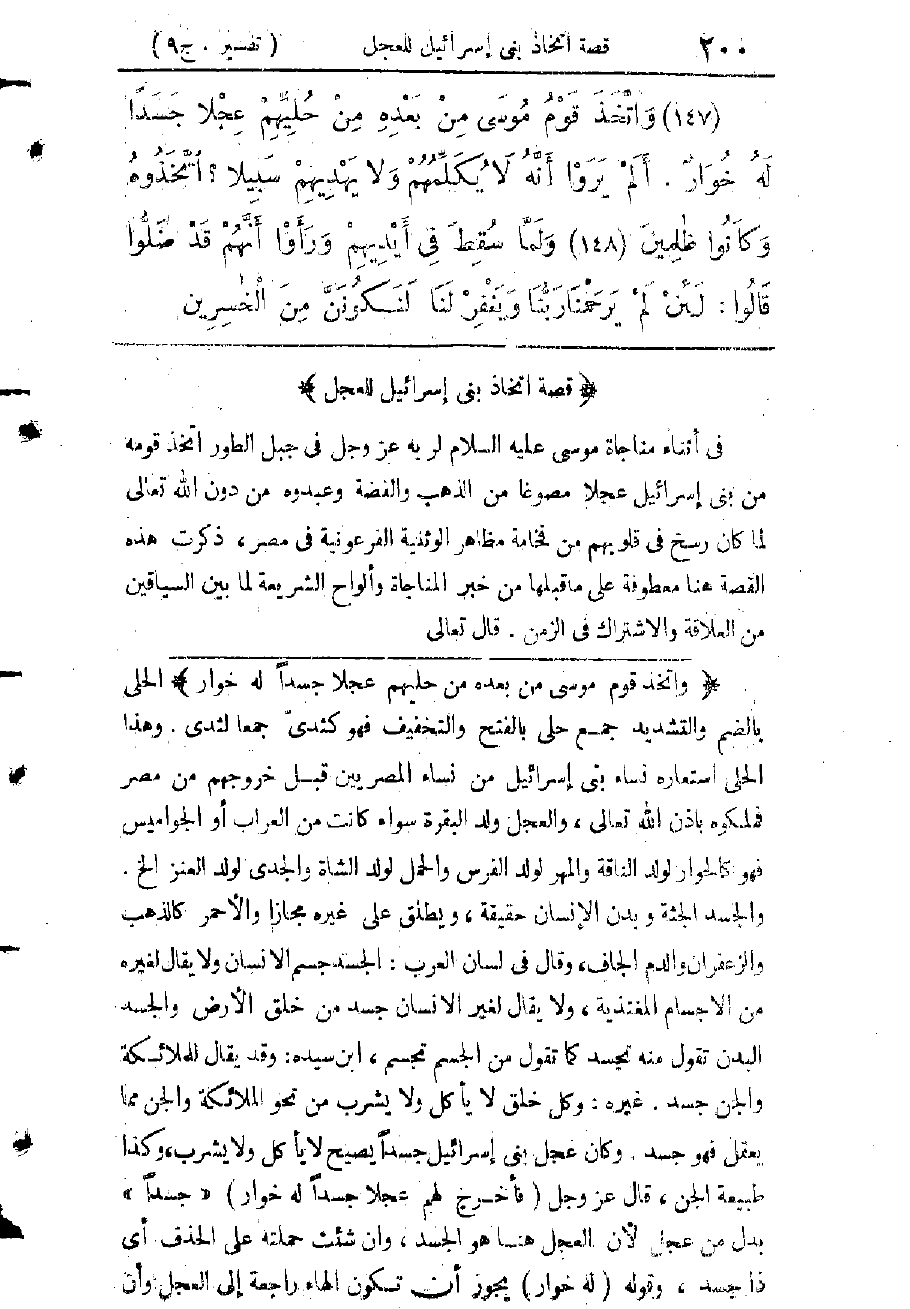 ٢٠٠ قصة اتخاذ بنى إسرائيل للعجل ( تفسير . ج ٩ )
(١٤٧) وَاتَّخَذَ قَوْمُ مُوسَى مِنْ بَعْدِهِ مِنْ حُلِيِّهِمْ عِجْلا جَسَدًا
لَهُ خُوَارٌ . أَلَمْ يَرَوْا أَنَّهُ لَا يُكَلِّمُهُمْ وَلا يَهْدِيهِمْ سَبِيلا ؟ اتَّخَذُوهُ
وَكَانُوا ظٰلِمِينَ (١٤٨) وَلَمَّا سُقِطَ فِي أَيْدِيهِمْ وَرَأَوْا أَنَّهُمْ قَدْ ضَلُّوا
قَالُوا : لَئِنْ لَمْ يَرْحَمْنَا رَبُّنَا وَيَغْفِرْ لَنَا لَنَكُونَنَّ مِنَ الْخٰسِرِين
﴿ قصة اتخاذ بنى إسرائيل للعجل ﴾
فى أثناء مناجاة موسى عليه السلام لربه عز وجل فى جبل الطور اتخذ قومه
من بنى إسرائيل عجلا مصوغا من الذهب والفضة وعبدوه من دون الله تعالى
لما كان رسخ فى قلوبهم من فخامة مظاهر الوثنية الفرعونية فى مصر ، ذكرت هذه
القصة هنا معطوفة على ماقبلها من خبر المناجاة وألواح الشريعة لما بين السياقين
من العلاقة والاشتراك فى الزمن . قال تعالى
﴿ واتخذ قوم موسى من بعده من حليهم عجلا جسداً له خوار ﴾ الحلى
بالضم والتشديد جمع حلى بالفتح والتخفيف فهو كثدىّ جمعا لثدى . وهذا
الحلى استعاره نساء بنى إسرائيل من نساء المصريين قبل خروجهم من مصر
فملكوه باذن الله تعالى ، والعجل ولد البقرة سواء كانت من العراب أو الجواميس
فهو كالحوار لولد الناقة والمهر لولد الفرس والحمل لولد الشاة والجدى لولد العنز الخ .
والجسد الجثة وبدن الإنسان حقيقة ، ويطلق على غيره مجازا والأحمر كالذهب
والزعفران والدم الجاف، وقال فى لسان العرب : الجسد جسم الانسان ولا يقال لغيره
من الاجسام المغتذية ، ولا يقال لغير الانسان جسد من خلق الأرض والجسد
البدن تقول منه تجسد كما تقول من الجسم تجسم ، ابن سيده: وقد يقال للملائكة
والجن جسد . غيره : وكل خلق لا يأكل ولا يشرب من نحو الملائكة والجن مما
يعقل فهو جسد . وكان عجل بنى إسرائيل جسداً يصيح لا يأكل ولا يشرب، وكذا
طبيعة الجن ، قال عز وجل ( فأخرج لهم عجلا جسداً له خوار ) « جسداً »
بدل من عجل لأن العجل هنا هو الجسد ، وان شئت حملته على الحذف أى
ذا جسد ، وقوله ( له خوار ) يجوز أن تكون الهاء راجعة إلى العجل وأن